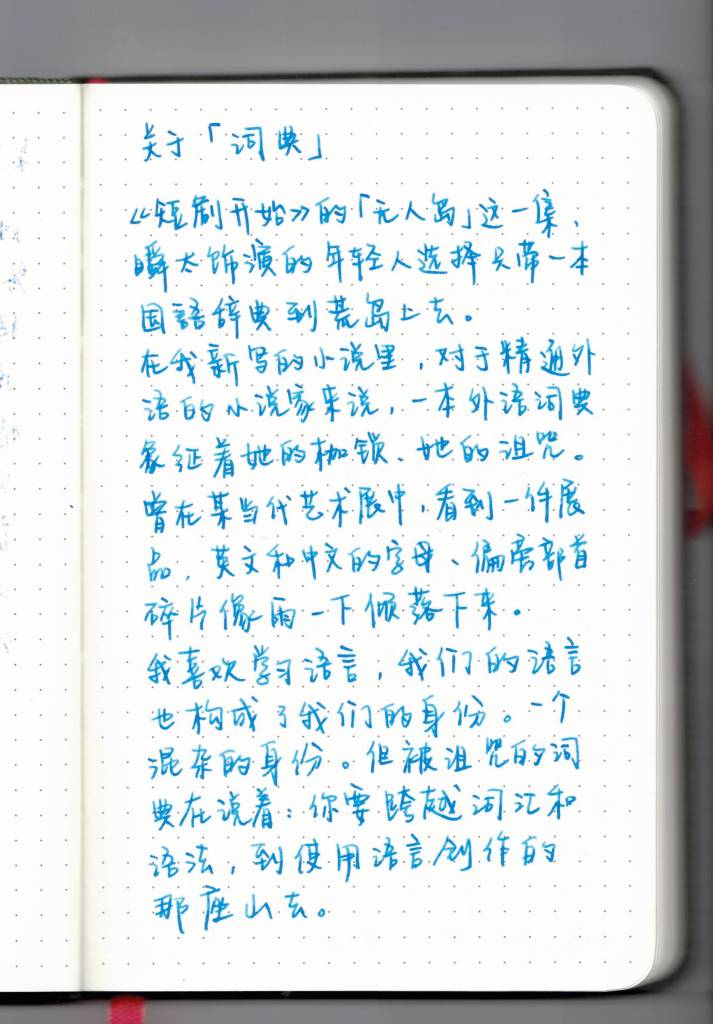 关于「词典」
《短剧开始》的「无人岛」这一集，
瞬太饰演的年轻人选择只带一本
国語辞典到荒岛上去。
在我新写的小说里，对于精通外
语的小说家来说，一本外语词典
象征着她的枷锁、她的诅咒。
曾在某当代艺术展中，看到一件展
品，英文和中文的字母、偏旁部首
碎片像雨一下倾落下来。
我喜欢学习语言，我们的语言
也构成了我们的身份。一个
混杂的身份。但被诅咒的词
典在说着：你要跨越词汇和
语法，到使用语言创作的
那座山去。